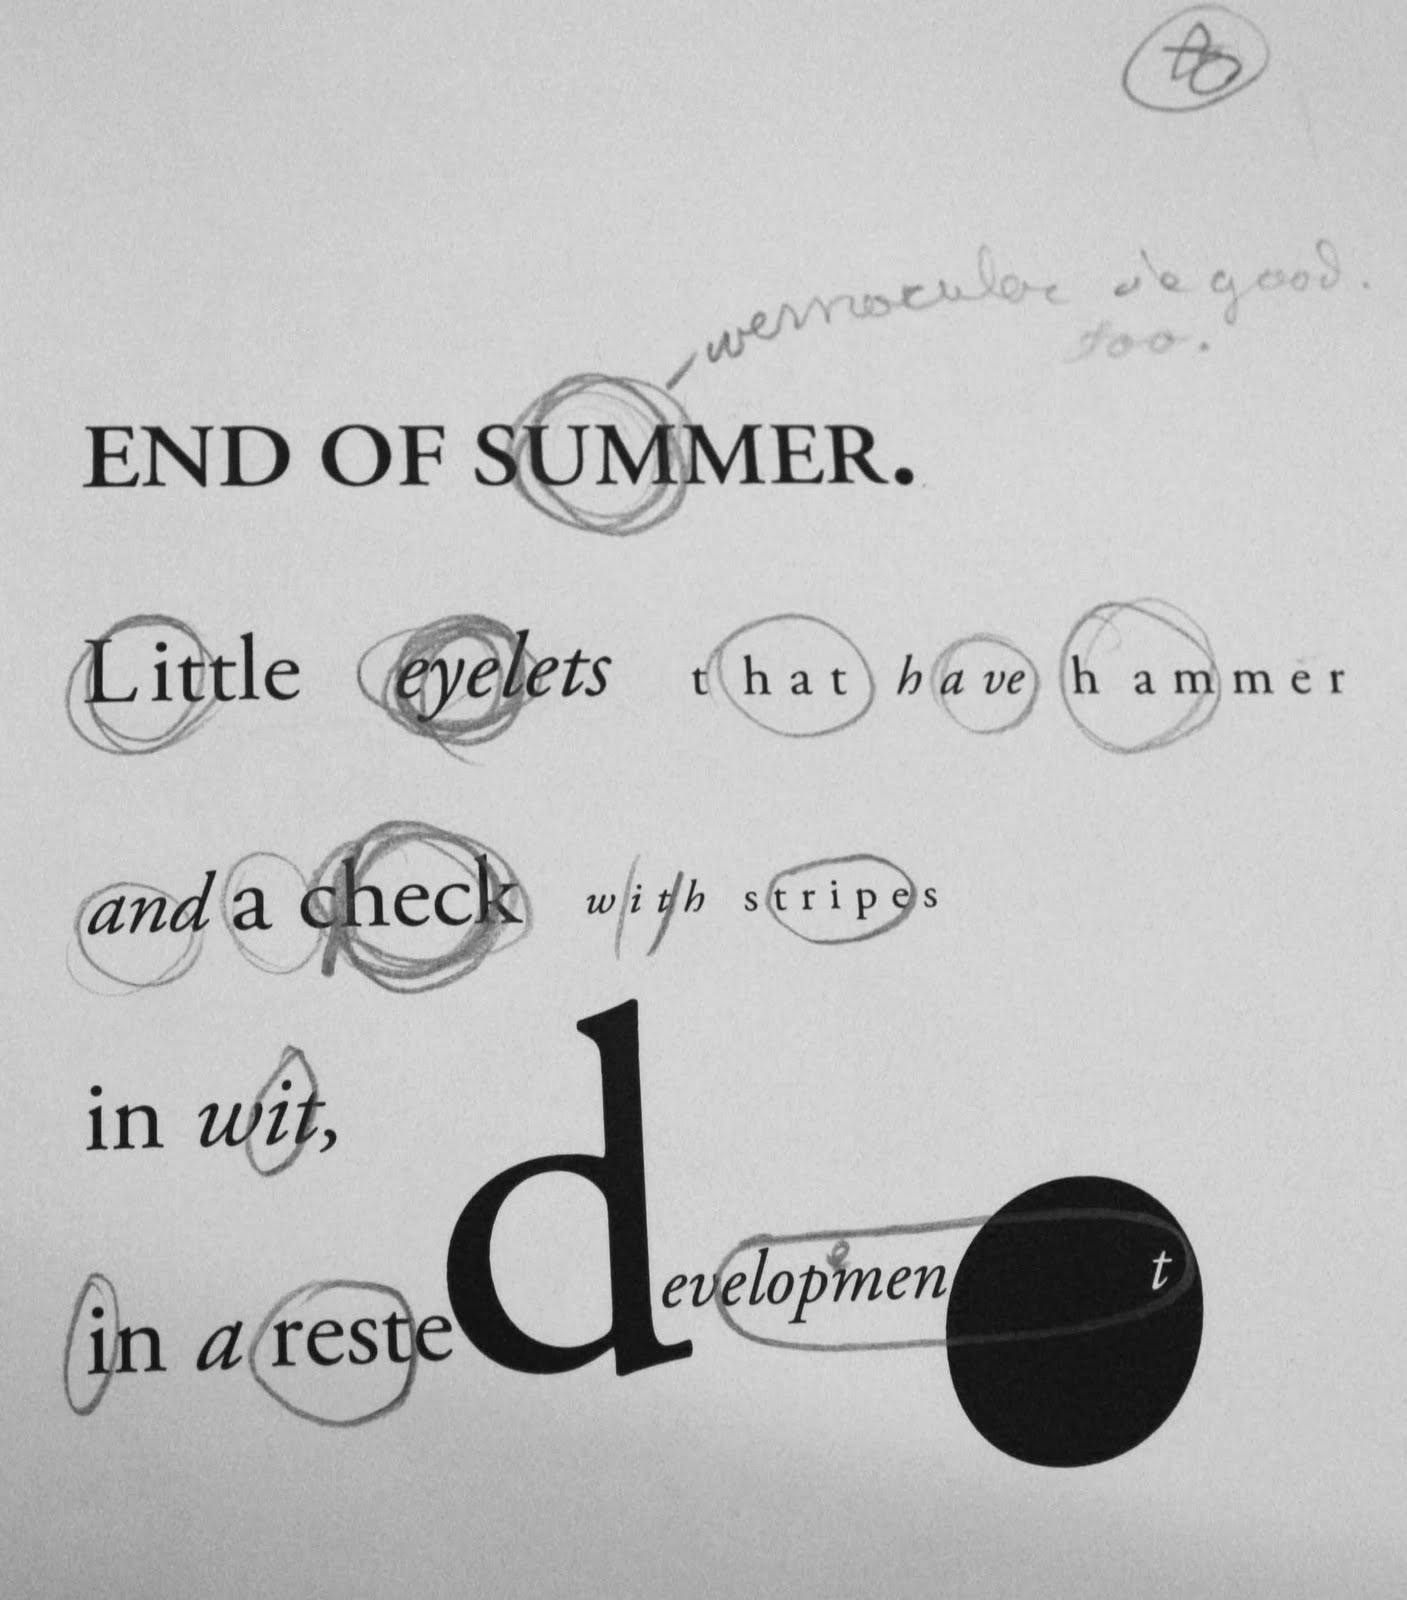 to
vernacular is good.
too.
END OF SUMMER.
Little eyelets that have hammer
and a check with stripes
in wit,
in a rested development